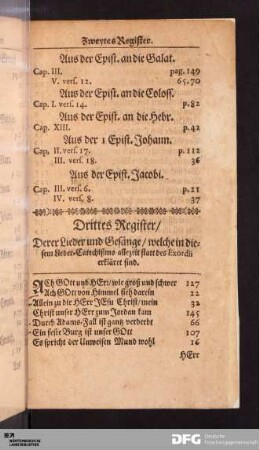 Zweytes Register.
Aus der Epist. an die Galat.
Cap. III. pag. 149
V. vers. 12. 65. 70
Aus der Epist. an die Coloss.
Cap. I. vers. 14. p. 82
Aus der Epist. an die Hebr.
Cap. XIII. p. 42
Aus der 1 Epist. Johann.
Cap. II. vers. 17. p. 112
III. vers. 18. 36
Aus der Epist. Jacobi.
Cap. III. vers. 6. p. 21
IV. vers. 8. 37
Drittes Register/
Derer Lieder und Gesänge/ welche in die-
sem Lieder-Catechismo allezeit statt des Exordii
erkläret sind.
ACh GOtt und HErr/ wie groß und schwer 127
Ach GOtt von Himmel sieh darein 12
Allein zu dir HErr JEsu Christ/ mein 32
Christ unser HErr zum Jordan kam 145
Durch Adams-Fall ist gantz verderbt 66
Ein feste Burg ist unser GOtt 107
Es spricht der Unweisen Mund wohl 16
HErr
WÜRTTEMBERGISCHE
LANDESBIBLIOTHEK
DFG Deutsche
Forschungsgemeinschaft